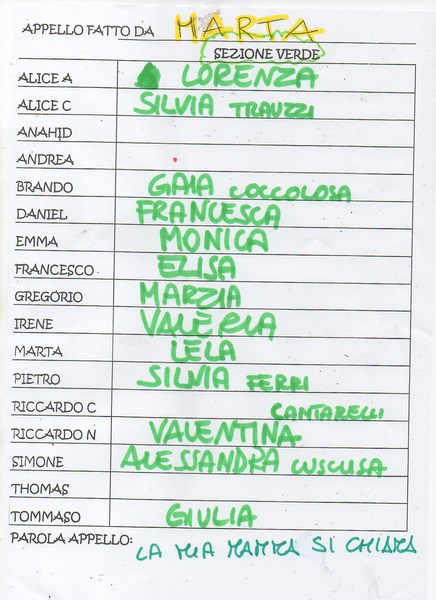 APPELLO FATTO DA MARTA
SEZIONE VERDE
ALICE A LORENZA
ALICE C SILVIA TRAUZZI
ANAHID
ANDREA
BRANDO GAIA COCCOLOSA
DANIEL FRANCESCA
EMMA MONICA
FRANCESCO ELISA
GREGORIO MARZIA
IRENE VALERIA
MARTA LELA
PIETRO SILVIA FERRI
RICCARDO C CANTARELLI
RICCARDO N VALENTINA
SIMONE ALESSANDRA
THOMAS
TOMMASO GIULIA
PAROLA APPELLO: LA MIA MAMMA SI CHIAMA